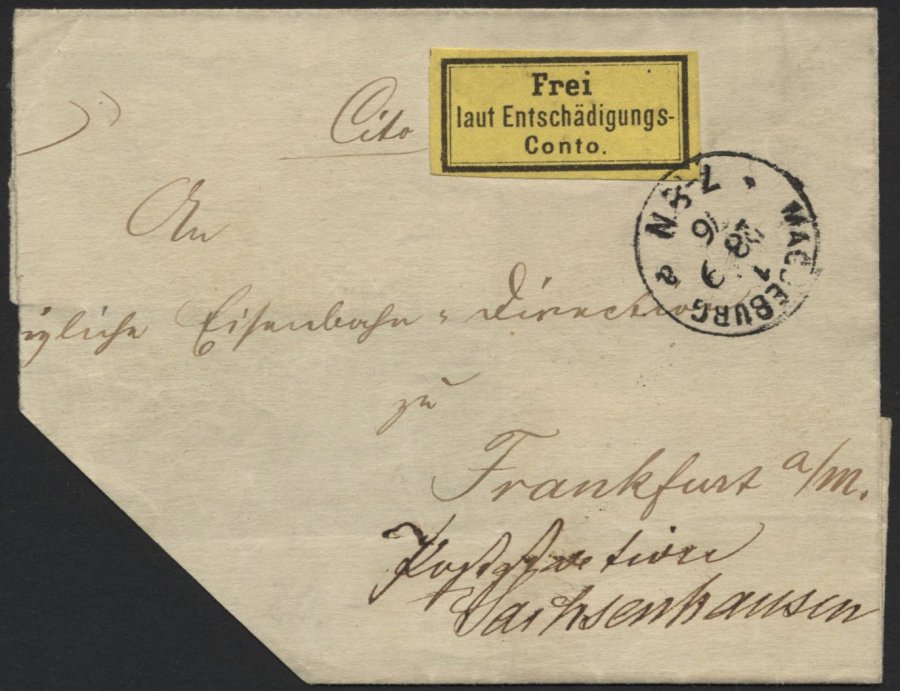 Frei
laut Entschädigungs-
Conto.
Cito
MAGDEBURG
An
igliche Eisenbahn-Direction
zu
Frankfurt a/M.
Poststation
Sachsenhausen